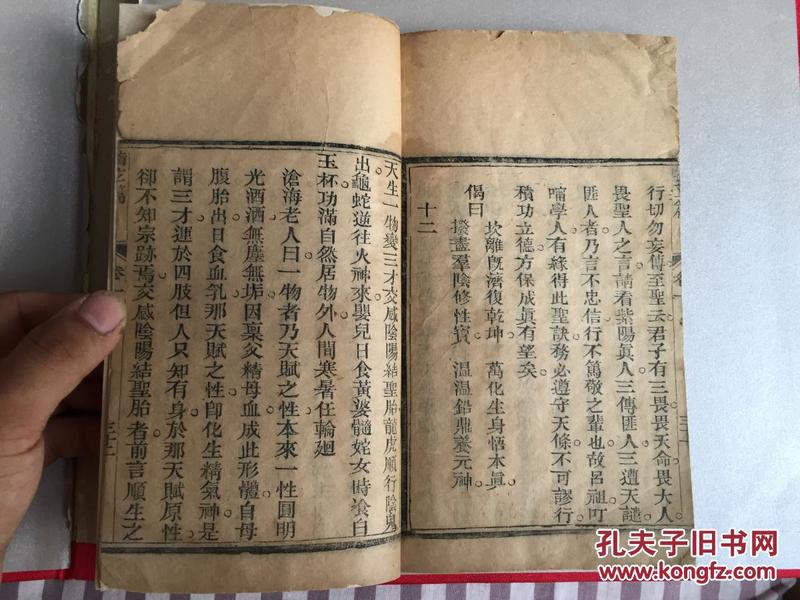 行切勿妄傳至聖云君子有三畏畏天命畏大人
畏聖人之言請看紫陽眞人三傳匪人三遭天譴
匪人者乃言不忠信行不篤敬之輩也故呂祖叮
嚀學人有緣得此聖訣務必遵守天條不可謬行
積功立德方保成眞有望矣
偈曰
坎離旣濟復乾坤 萬化生身悟本眞
掇盡羣陰修性寶 溫溫鉛鼎養元神
十二
天生一物變三才交感陰陽結聖胎龍虎順行陰鬼
出龜蛇逆往火神來嬰兒日食黃婆髓姹女時飡白
玉杯功滿自然居物外人間寒暑任輪廻
滄海老人曰一物者乃天賦之性本來一性圓明
光洒洒無塵無垢因稟父精母血成此形體自母
腹胎出日食血乳那天賦之性卽化生精氣神是
謂三才運於四肢但人只知有身於那天賦原性
卻不知宗跡焉交感陰陽結聖胎者前言順生之
卷一
三十二
孔夫子旧书网
www.kongfz.com